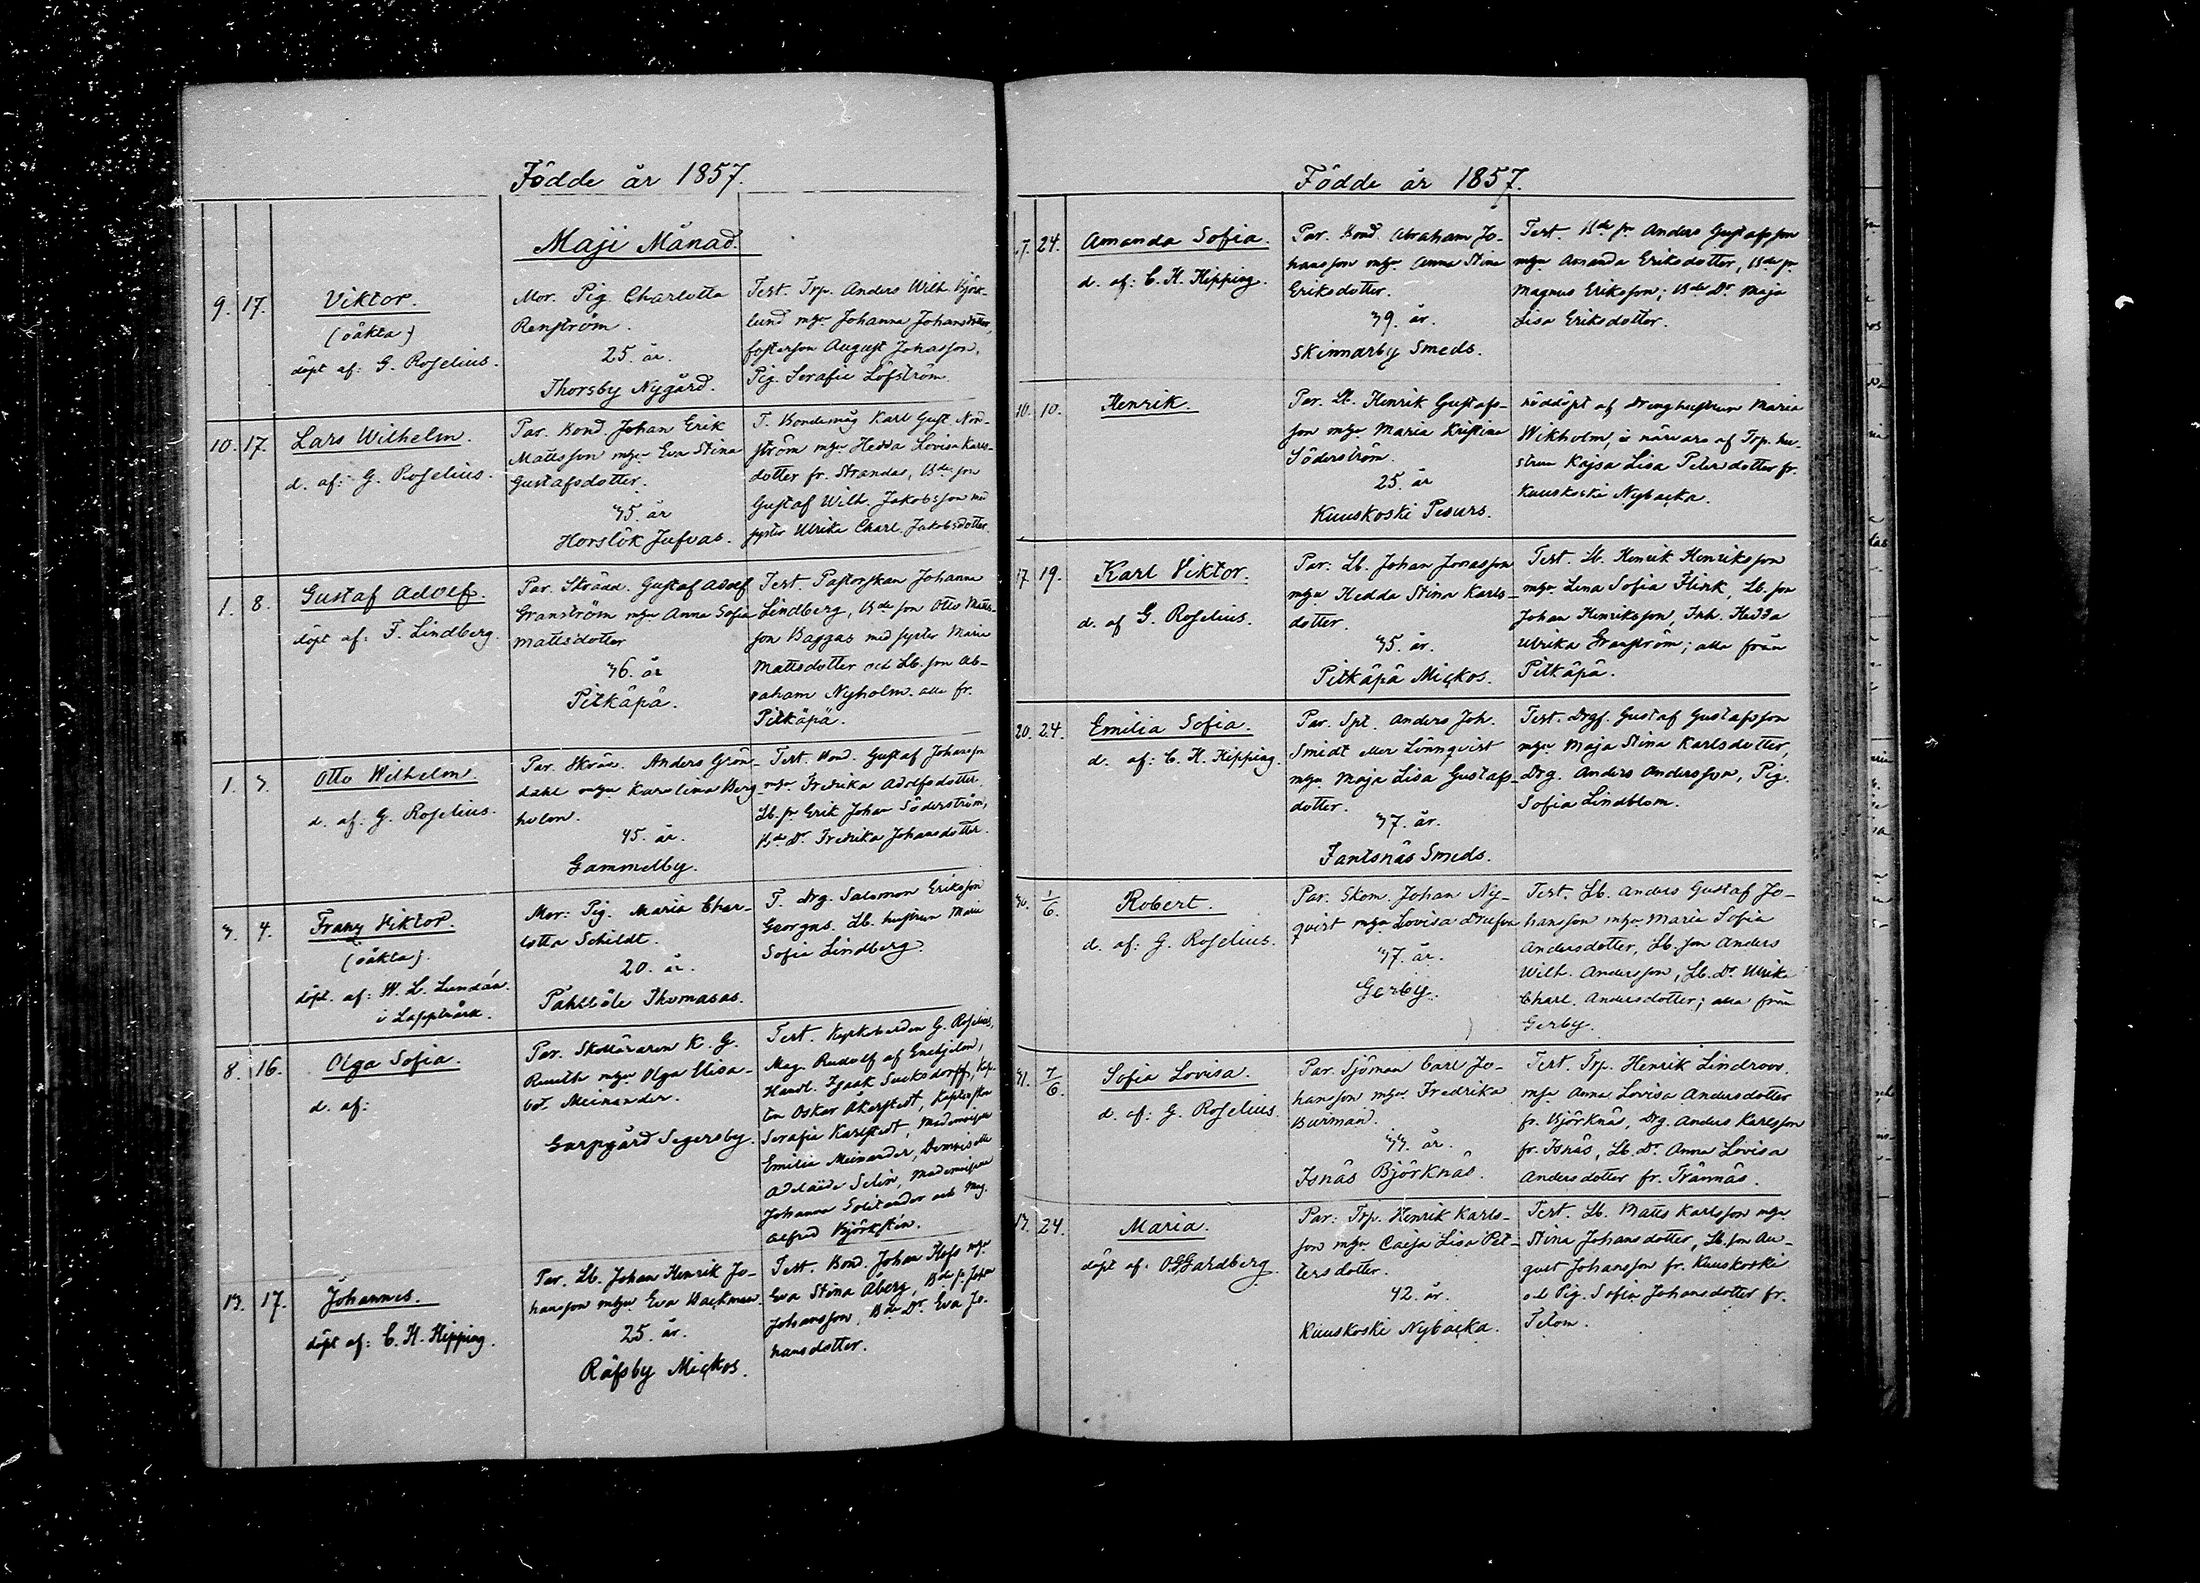 Födde år 1857.
Maji Månad.
9. 17. Viktor.
(oäkta)
döpt af: G. Roselius.
Mor. Pig. Charlotta
Renström.
25. år.
Thorsby Nygård.
Test. Trp. Anders Wilh. Björk-
lund mhu Johanna Johansdotter,
fosterson August Johansson,
Pig. Serafie Löfström.
10. 17. Lars Wilhelm.
d. af: G. Roselius.
Par. Bond. Johan Erik
Mattsson mhu Eva Stina
Gustafsdotter.
35. år
Horslök Jufvas.
T. Bondemåg Karl Gust. Nord-
ström mhu Hedda Lovisa Karls-
dotter fr. Strandas, Bde son
Gustaf Wilh. Jakobsson med
syster Ulrika Charl. Jakobsdotter.
1. 8. Gustaf Adolf.
döpt af: F. Lindberg.
Par. Skrädd. Gustaf Adolf
Granström mhu Anna Sofia
Mattsdotter
36. år
Pitkäpä.
Test. Pastorskan Johanna
Lindberg, Bde son Otto Matts-
son Baggas med syster Maria
Mattsdotter och Lb. son Ab-
raham Nyholm. alla fr.
Pitkäpä.
1. 3. Otto Wilhelm.
d. af: G. Roselius.
Par. Skräd. Anders Grön-
dahl mhu Karolina Berg-
holm.
45. år.
Gammelby.
Test. Bond. Gustaf Johansson
mhu Fredrika Adolfsdotter.
Lb. sn Erik Johan Söderström,
Bde Dr Fredrika Johansdotter.
3. 4. Franz Viktor.
(oäkta).
döpt. af: W. L. Lundán.
i Lappträsk.
Mor: Pig. Maria Char-
lotta Schildt.
20. år.
Påhlböle Thomasas.
T. Drg. Salomon Eriksson
Georgns. Lb. hustrun Maria
Sofia Lindberg.
8. 16. Olga Sofia.
d. af:
Par. Skolläraren K. G.
mhu Olga Elisa-
bet Meinander.
Segersby.
Test. Kyrkoherden G. Roselius,
Mag. Rudolf af Enehjelm,
Handl. Isaak Sucksdorff, Kap-
ten Oskar Åkerstedt,
Serafia Karlstedt, Mademoiselle
Emilie Meinander, Demoiselle
Adelaide Selin, Mademoiselle
Johanna Solitander och Mag.
Alfred Björkstén.
13. 17. Johannes.
döpt af: C. H. Hipping.
Par. Lb. Johan Henrik Jo-
hansson mhu Eva Backman.
25. år.
Räfsby Mickos.
Test. Bond. Johan mhu
Eva Stina Åberg, Bde sn Johan
Johansson, Bde Dr. Eva Jo-
hansdotter.
Födde år 1857.
17. 24. Amanda Sofia.
d. af: C. H. Hipping.
Par. Bond. Abraham Jo-
hansson mhu Anna Stina
Eriksdotter.
39. år.
Skinnarby Smeds.
Test. Bde sn Anders Gustafsson
mhu Amanda Eriksdotter, Bde sn
Magnus Eriksson; Bde Dr Maja
Lisa Eriksdotter.
10. 10. Henrik.
Par. Lb. Henrik Gustafs-
son mhu Maria Kristina
Söderström.
25. år
Kuuskoski Pesurs.
nöddöpt af Drenghustrun Maria
Wikholm, i närvaro af Trp. hu-
strun Kajsa Lisa Petersdotter fr.
Kuuskoski Nybacka.
17. 19. Karl Viktor.
d. af G. Roselius.
Par: Lb. Johan Jonasson
mhu Hedda Stina Karls-
dotter.
35. år.
Pitkäpä Mickos.
Test. Lb. Henrik Henriksson
mhu Lena Sofia Flink, Lb. son
Johan Henriksson, Inh. Hedda
Ulrika Granström; alla från
Pitkäpä.
20. 24. Emilia Sofia.
d. af: C. H. Hipping.
Par. Spt. Anders Joh.
Smidt eller Lönnqvist
mhu Maja Lisa Gustafs-
dotter.
37. år.
Fantsnäs Smeds.
Test. Drgf. Gustaf Gustafsson
mhu Maja Stina Karlsdotter,
Drg. Anders Andersson, Pig.
Sofia Lindblom.
30. 1/6. Robert.
d. af: G. Roselius.
Par. Skom. Johan Ny-
qvist mhu Lovisa Drufva
37. år.
Gerby.
Test. Lb. Anders Gustaf Jo-
hansson mhu Maria Sofia
Andersdotter, Lb. son Anders
Wilh. Andersson, Lb. Dr Ulrika
Charl. Andersdotter; alla från
Gerby.
31. 7/6. Sofia Lovisa.
d. af: G. Roselius.
Par. Sjöman Carl Jo-
hansson mhu Fredrika
Burman.
33. år.
Isnäs Björknäs.
Test. Trp. Henrik Lindroos.
mhu Anna Lovisa Andersdotter
fr. Björknäs, Drg. Anders Karlsson
fr. Isnäs, Lb. Dr. Anna Lovisa
Andersdotter fr. Trännäs.
13. 24. Maria.
döpt af: O. G. Gardberg.
Par: Trp. Henrik Karls-
son mhu Caisa Lisa Pet-
tersdotter.
42. år.
Kuuskoski Nybacka.
Test. Lb. Matts Karlsson mhu
Stina Johansdotter, Lb. son Au-
gust Johansson fr. Kuuskoski
och Pig. Sofia Johansdotter fr.
Tetom.